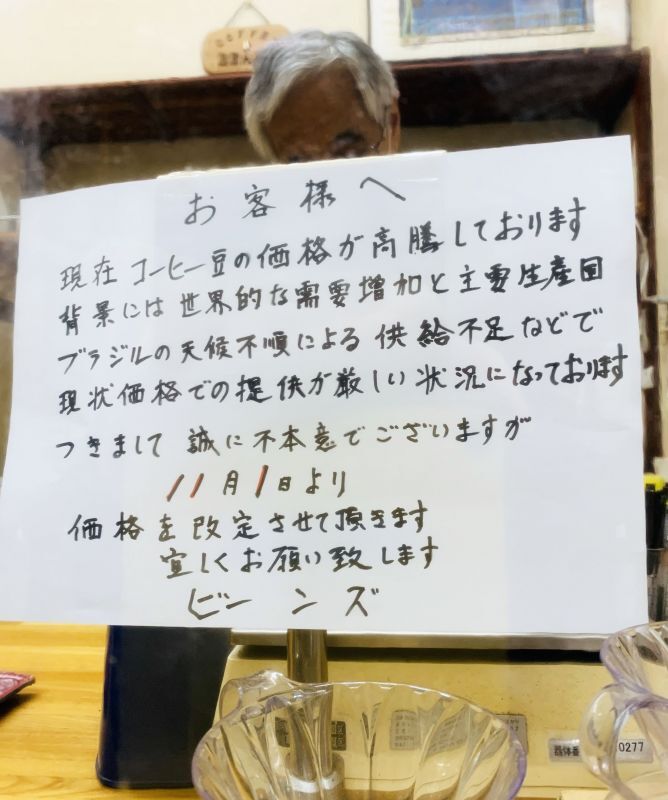 お客様へ
現在コーヒー豆の価格が高騰しております
背景には世界的な需要増加と主要生産国
ブラジルの天候不順による供給不足などで
現状価格での提供が厳しい状況になっております
つきまして誠に不本意でございますが
11月1日より
価格を改定させて頂きます
宜しくお願い致します
ビーンズ
0277